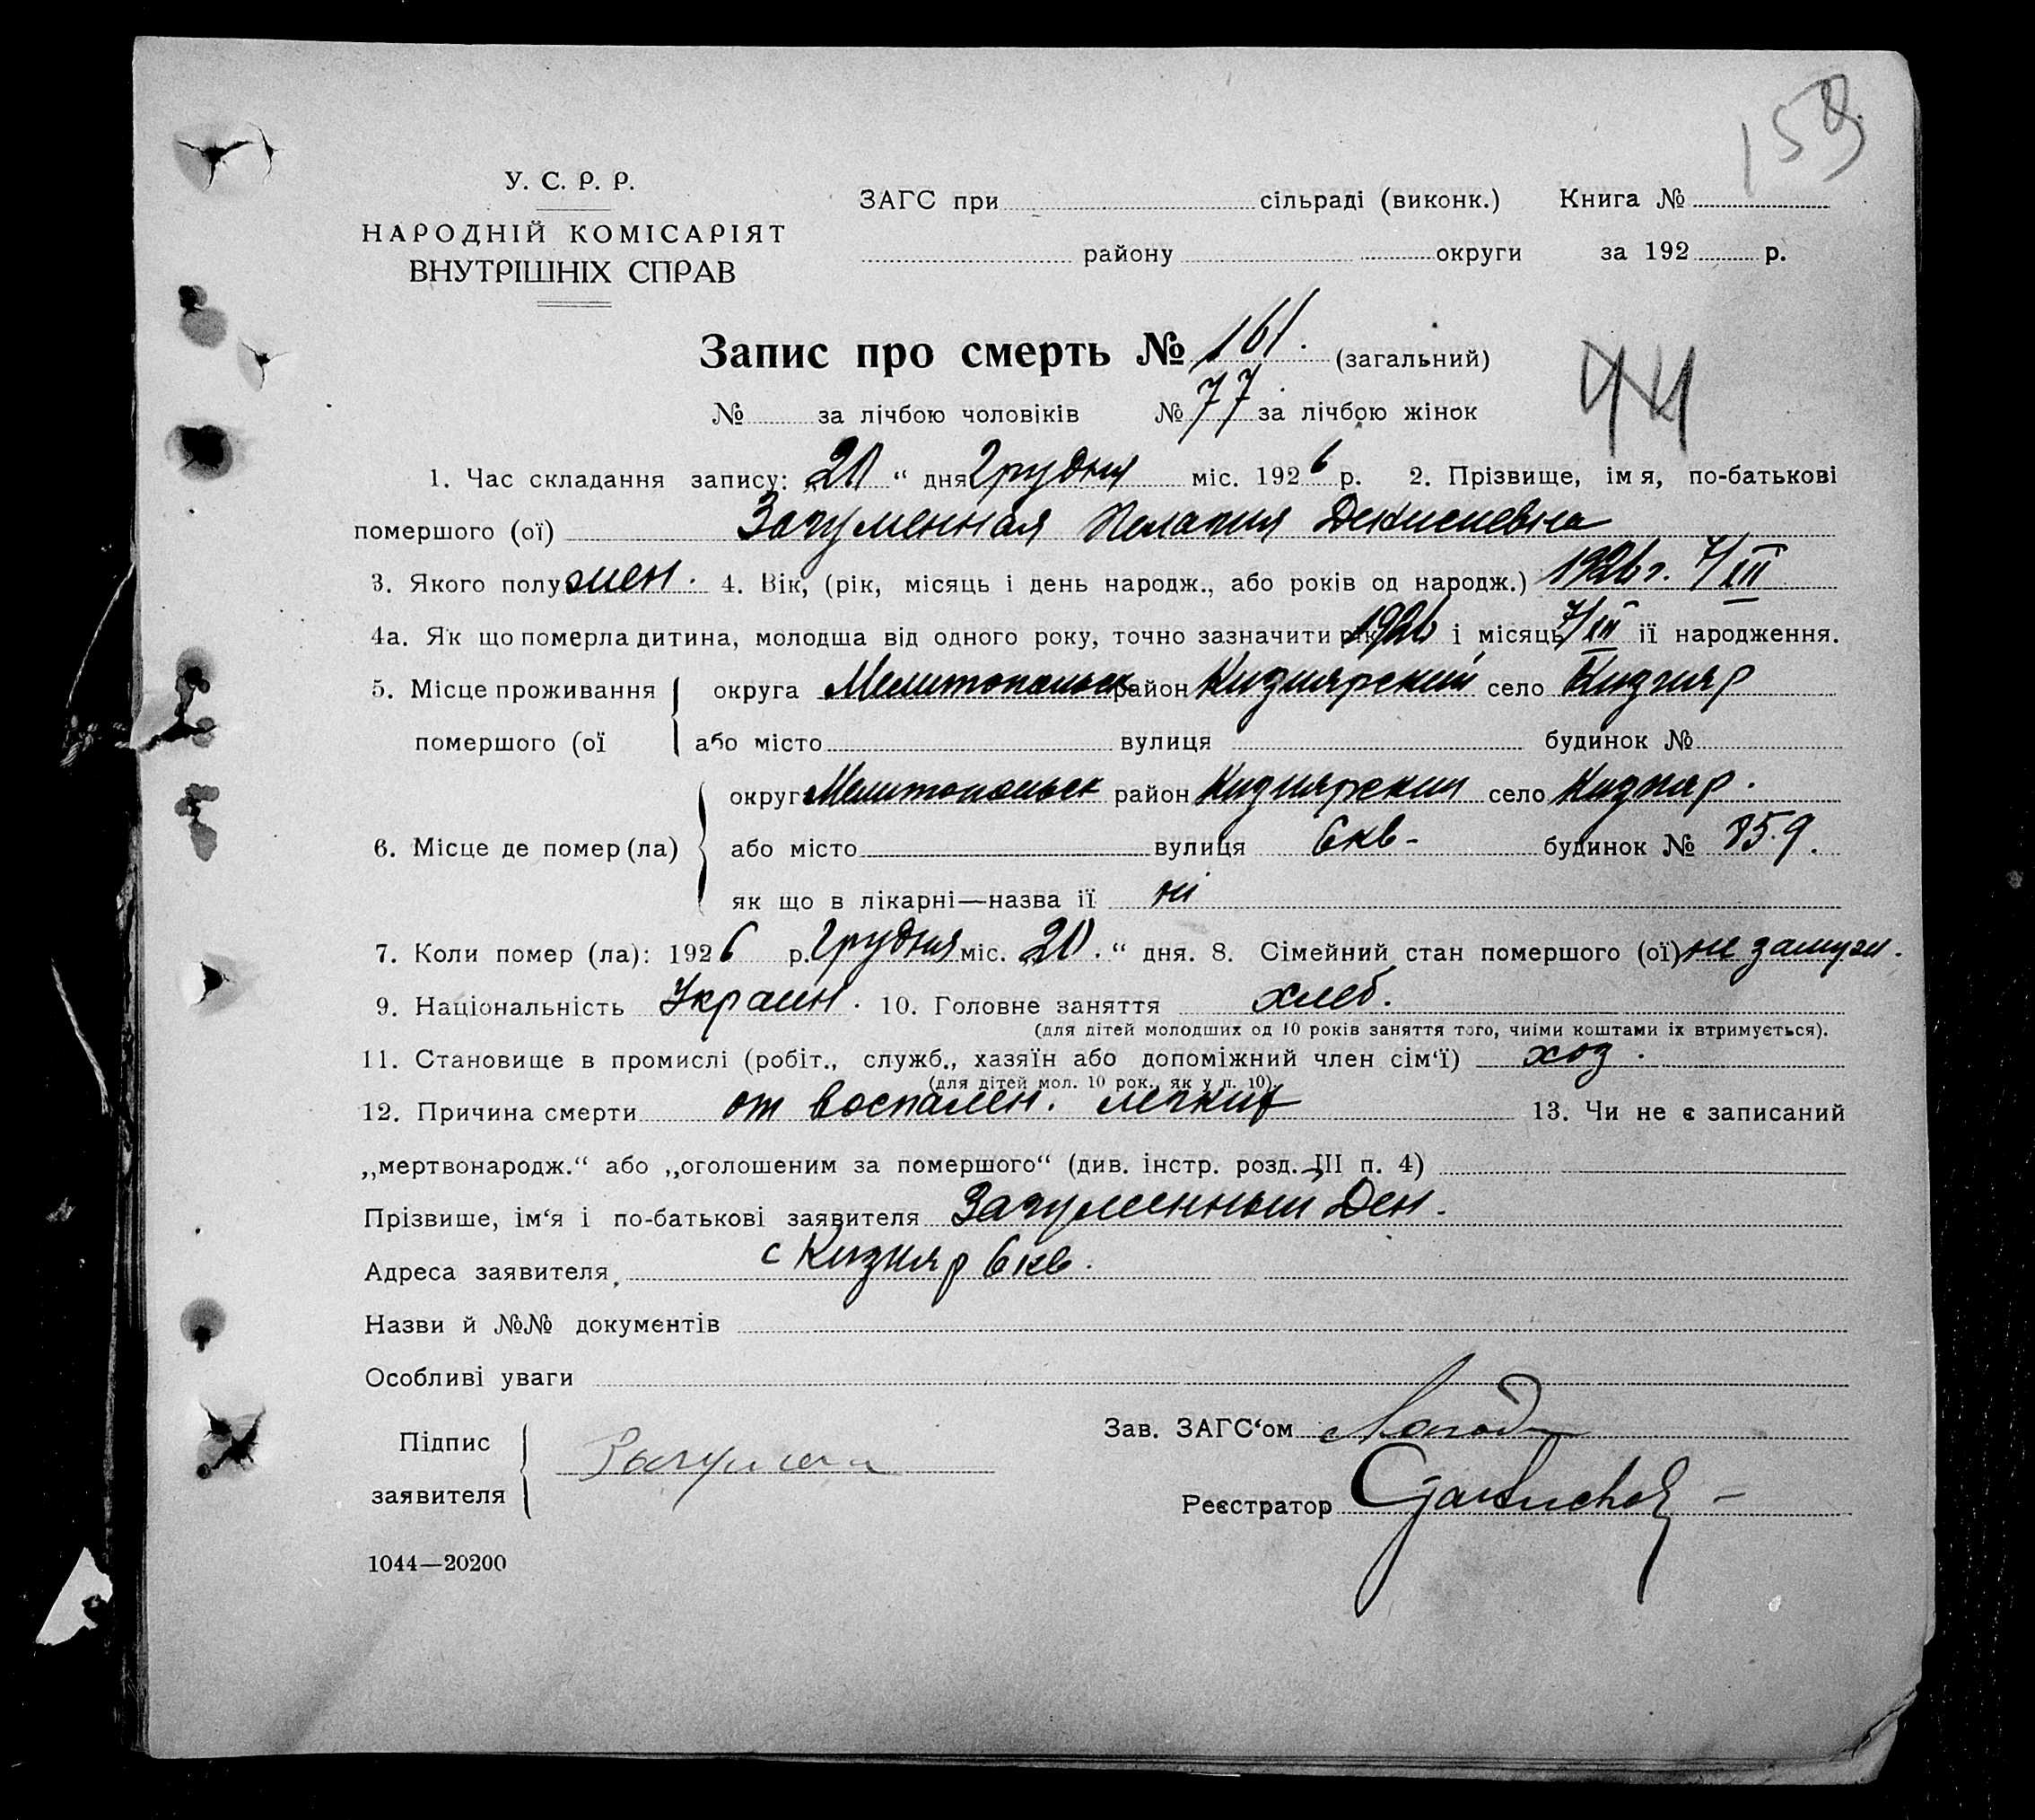 159
У. С. Р. Р.
НАРОДНІЙ КОМІСАРІЯТ
ВНУТРІШНІХ СПРАВ
ЗАГС при сільраді (виконк.) Книга №
району округи за 192 р.
Запис про смерть № 161. (загальний)
44
№ за лічбою чоловіків № 77 за лічбою жінок
1. Час складання запису: „20 “ дня Грудня міс. 1926 р. 2. Прізвище, імя, по-батькові
помершого (ої) Загуменная Пелагия Денисиевна
3. Якого полу жен. 4. Вік, (рік, місяць і день народж., або років од народж.) 1926 г. 7/III
4а. Як що померла дитина, молодша від одного року, точно зазначити рік 1926 і місяць 7/III ії народження.
5. Місце проживання округа Мелитопольск район Кизиярский село Кизияр
помершого (ої або місто вулиця будинок №
округа Мелитопольск район Кизиярский село Кизияр.
6. Місце де помер (ла) або місто вулиця 6 кв- будинок № 859.
як що в лікарні—назва ії ні
7. Коли помер (ла): 1926 р. Грудня міс. „20. “ дня. 8. Сімейний стан помершого (ої) не замуж.
9. Національність Украин. 10. Головне заняття хлеб.
(для дітей молодших од 10 років заняття того, чиїми коштами їх втримується).
11. Становище в промислі (робіт., служб., хазяїн або допоміжний член сім‘ї) хоз.
(для дітей мол. 10 рок., як у п. 10).
12. Причина смерти от воспален. легких 13. Чи не є записаний
„мертвонародж.“ або „оголошеним за помершого“ (див. інстр. розд. III п. 4)
Прізвише, ім‘я і по-батькові заявителя Загуменный Ден.
Адреса заявителя, с Кизияр 6 кв.
Назви й №№ документів
Особливі уваги
Зав. ЗАГС‘ом
Підпис
заявителя
Реєстратор
1044—20200